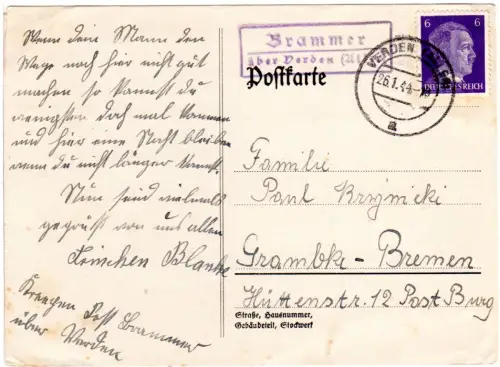 Wenn dein Mann den
Weg noch hier nicht gut
machen so kannst du
wenigsten doch mal kommen
und hier eine Nacht bleiben
wenn du nicht länger kannst.
Nun seid vielmals
gegrüßt von uns allen
Leinchen Blanke
Kreepen Post Brammer
über Verden
Brammer
über Verden (Aller)
Postkarte
VERDEN (ALLER)
26.1.44
a
6 6
DEUTSCHES REICH
Familie
Paul Krynicki
Grambke-Bremen
Hüttenstr. 12 Post Burg
Straße, Hausnummer,
Gebäudeteil, Stockwerk